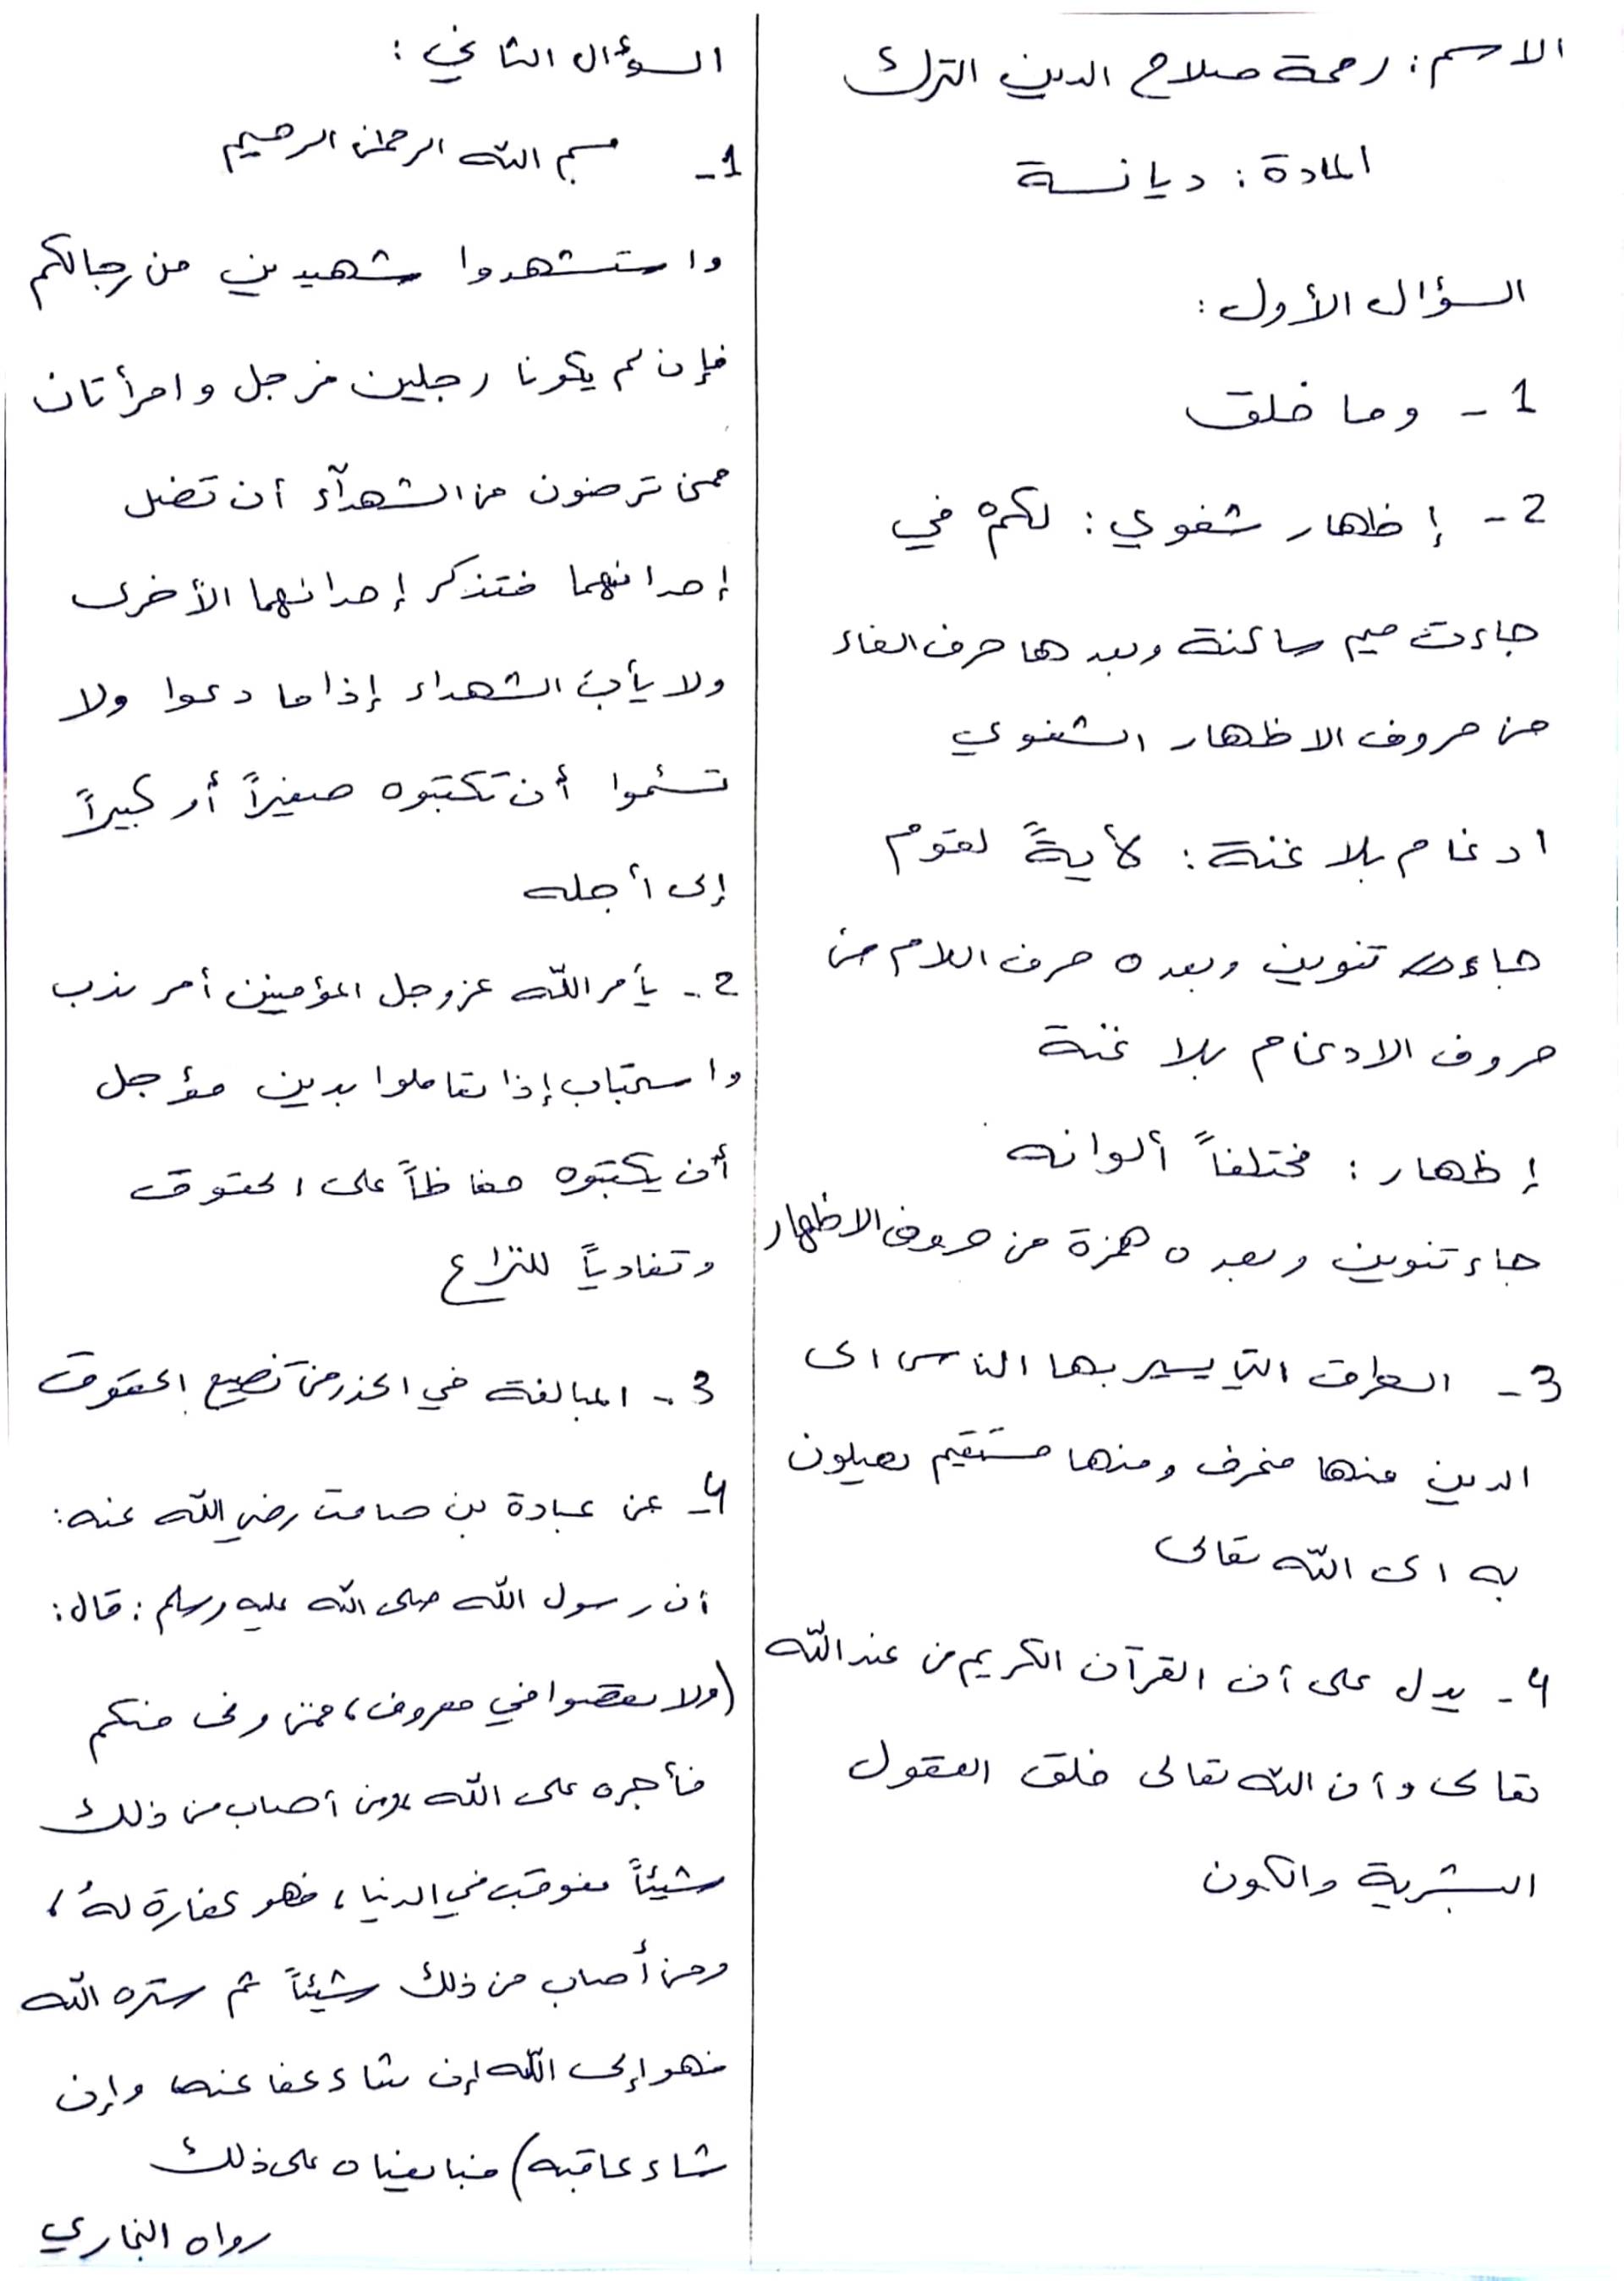 الاسم: رحمة صلاح الدين الترك
المادة: ديانة
السؤال الأول:
1 - وما خلق
2 - إظهار شفوي: لكمْ في
جاءت ميم ساكنة وبعدها حرف الفاء
من حروف الاظهار الشفوي
ادغام بلا غنة: لأيةً لقوم
جاء تنوين وبعده حرف اللام من
حروف الادغام بلا غنة
إظهار: مختلفاً ألوانه
جاء تنوين وبعده همزة من حروف الاظهار
3 - الطرق التي يسير بها الناس الى
الدين منها منحرف ومنها مستقيم يصلون
به الى الله تعالى
4 - يدل على أن القرآن الكريم من عند الله
تعالى وأن الله تعالى خلق العقول
البشرية والكون
السؤال الثاني:
1 - بسم الله الرحمن الرحيم
واستشهدوا شهيدين من رجالكم
فإن لم يكونا رجلين فرجل وامرأتان
ممن ترضون من الشهدآء أن تضل
إحدائهما فتذكر إحدائهما الأخرى
ولا يأب الشهداء إذا ما دعوا ولا
تسئموا أن تكتبوه صغيراً أو كبيراً
إلى أجله
2 - يأمر الله عز وجل المؤمنين أمر ندب
واستحباب إذا تعاملوا بدين مؤجل
أن يكتبوه حفاظاً على الحقوق
وتفادياً للنزاع
3 - المبالغة في الحذر من تضيع الحقوق
4 - عن عبادة بن صامت رضي الله عنه:
أن رسول الله صلى الله عليه وسلم: قال:
(ولا تعصوا في معروف، فمن وفى منكم
فأجره على الله، ومن أصاب من ذلك
شيئاً فعوقب في الدنيا، فهو كفارة لهُ،
ومن أصاب من ذلك شيئاً ثم ستره الله
فهو إلى الله إن شاء عفا عنه وإن
شاء عاقبه) فبايعناه على ذلك
رواه البخاري